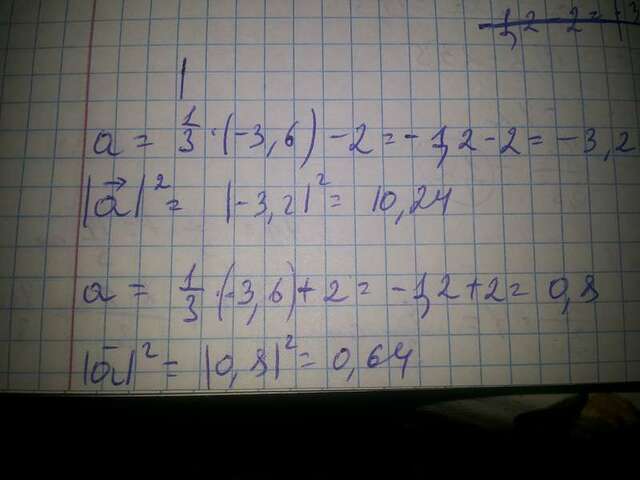 -1,2-2=-3
1
a = 1/3 · (-3,6) - 2 = -1,2 - 2 = -3,2
|a⃗|² = |-3,2|² = 10,24
a = 1/3 · (-3,6) + 2 = -1,2 + 2 = 0,8
|a̅|² = |0,8|² = 0,64